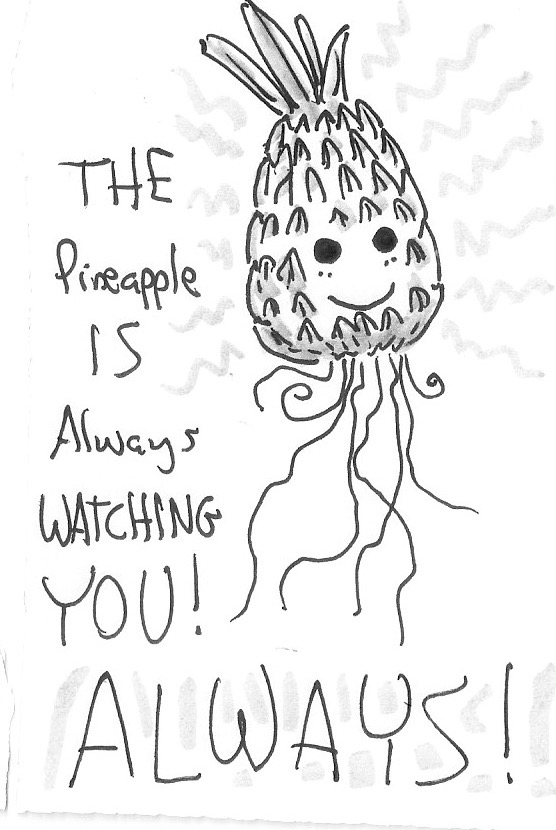 THE
Pineapple
IS
Always
WATCHING
YOU!
ALWAYS!